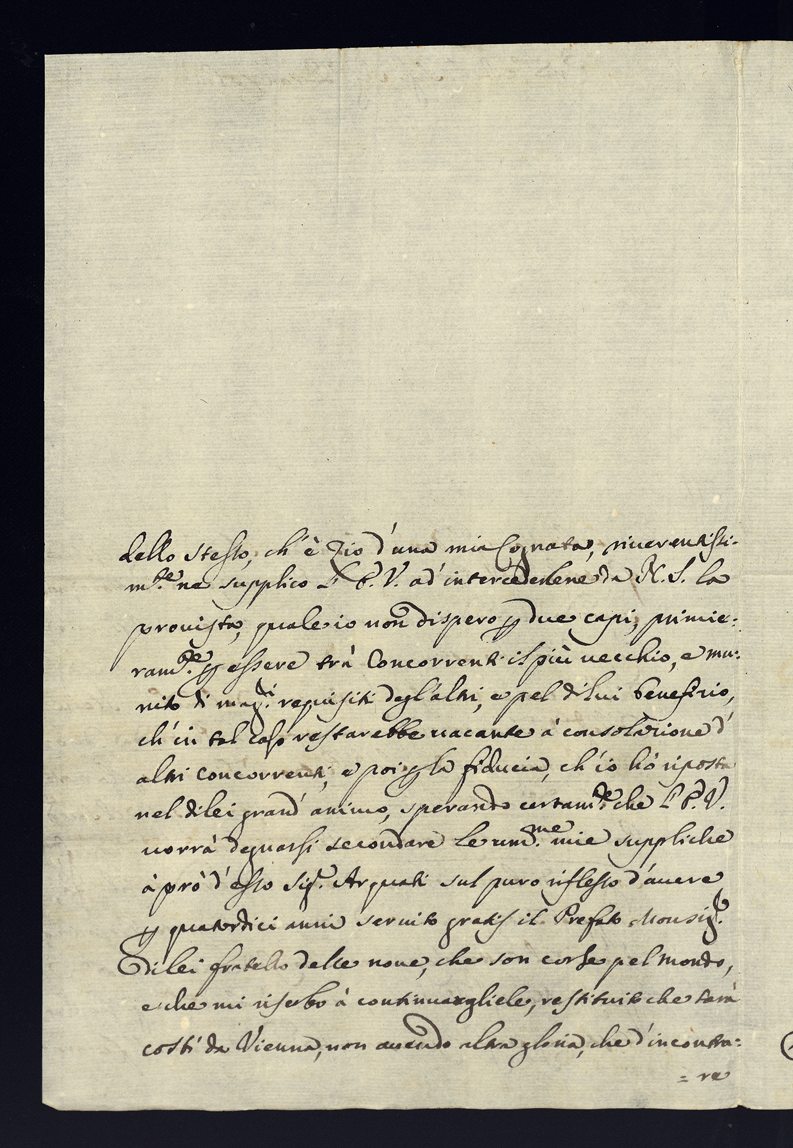 dello stesso, ch'è Zio d'una mia Cognata, riverentissi-
m.te ne supplico L'E.V. ad'intercederlene da N. S. la
provista, quale io non dispero p due capi, primie:
ram.te p essere trà Concorrenti il più vecchio, e mu:
nito di mag.i requisiti degl'altri, e pel di lui beneficio,
ch'in tal caso restarebbe vacante à consolazione d'
altri concorrenti, e poi p la fiducia, ch'io hò riposta
nel di lei grand'animo, sperando certam.te che L'E.V.
vorrà degnarsi secondare le um.me mie suppliche
à prò d'esso Sig.r Arquati sul puro riflesso d'avere
p quatordici anni servito gratis il Prefato Monsig.r
Di lei fratello delle nove, che son corse pel mondo,
e che mi riserbo à continuargliele, restituito che sarà
costì da Vienna, non avendo altra gloria, che d'incontra:
= re